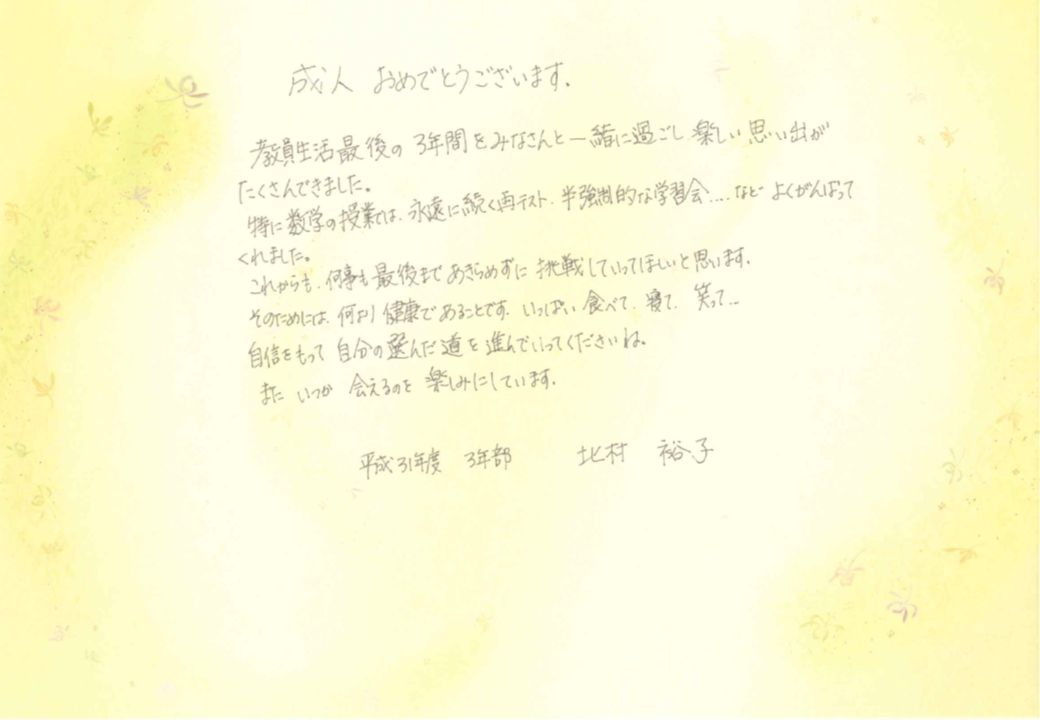 成人 おめでとうございます.
教員生活最後の 3年間をみなさんと一緒に過ごし 楽しい思い出が
たくさんできました。
特に数学の授業では、永遠に続く再テスト、半強制的な学習会....など よくがんばって
くれました。
これからも、何事も最後まで あきらめずに 挑戦していってほしいと思います.
そのためには、何より健康であることです. いっぱい 食べて、寝て、笑って...
自信をもって 自分の選んだ道を進んでいってくださいね。
また いつか 会えるのを 楽しみにしています.
平成31年度 3年部 北村 裕子